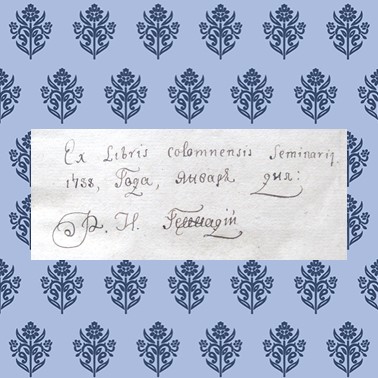 Ex Libris colomnensis Seminarij.
1788, Года, Январѧ дня:
Р. Н. Геннадій